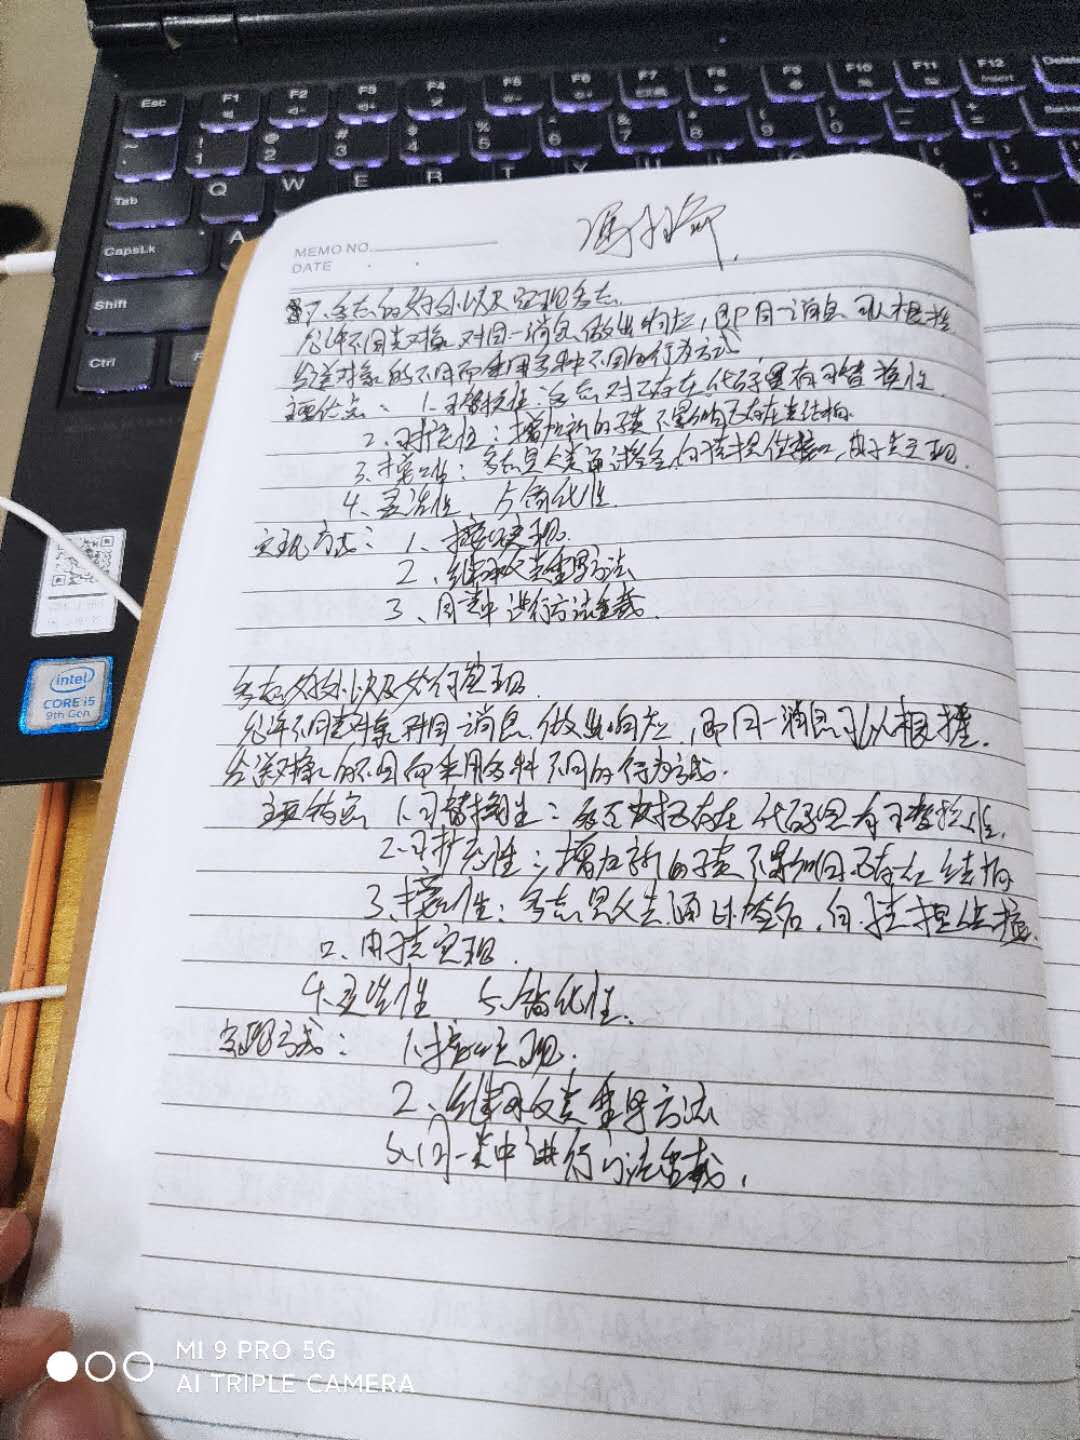 Esc F1 F2 F3 F4 F5 F6 F7 F8 F9 F10 F11 F12 Delete
Insert
~ ! 1 @ 2 # 3 $ 4 % 5 ^ 6 & 7 * 8 ( 9 ) 0
Tab Q W E R T Y U
CapsLk A
Shift
Ctrl
MEMO NO.
DATE
7、多态的好处以及实现多态.
允许不同类对象对同一消息做出响应，即同一消息可以根据
发送对象的不同而采用多种不同的行为方式
主要优点： 1.可替换性：多态对已存在代码具有可替换性
2.可扩充性：增加新的子类不影响已存在类结构.
3.接口性：多态是父类通过签名,向子类提供接口,由子类实现.
4、灵活性、5、简化性.
实现方式： 1、接口实现.
2、继承父类重写方法
3、同类中进行方法重载.
多态好处以及如何实现.
允许不同类对象对同一消息做出响应,即同一消息可以根据.
发送对象的不同而采用多种不同的行为方式.
主要优点 1.可替换性：多态对已存在代码具有可替换性.
2.可扩充性：增加新的子类不影响已存在结构
3、接口性：多态是父类通过签名,向子类提供接
口、由子类实现.
4、灵活性 5、简化性.
实现方式： 1、接口实现.
2、继承父类重写方法
3、同一类中进行方法重载.
intel
CORE i5
9th Gen
MI 9 PRO 5G
AI TRIPLE CAMERA